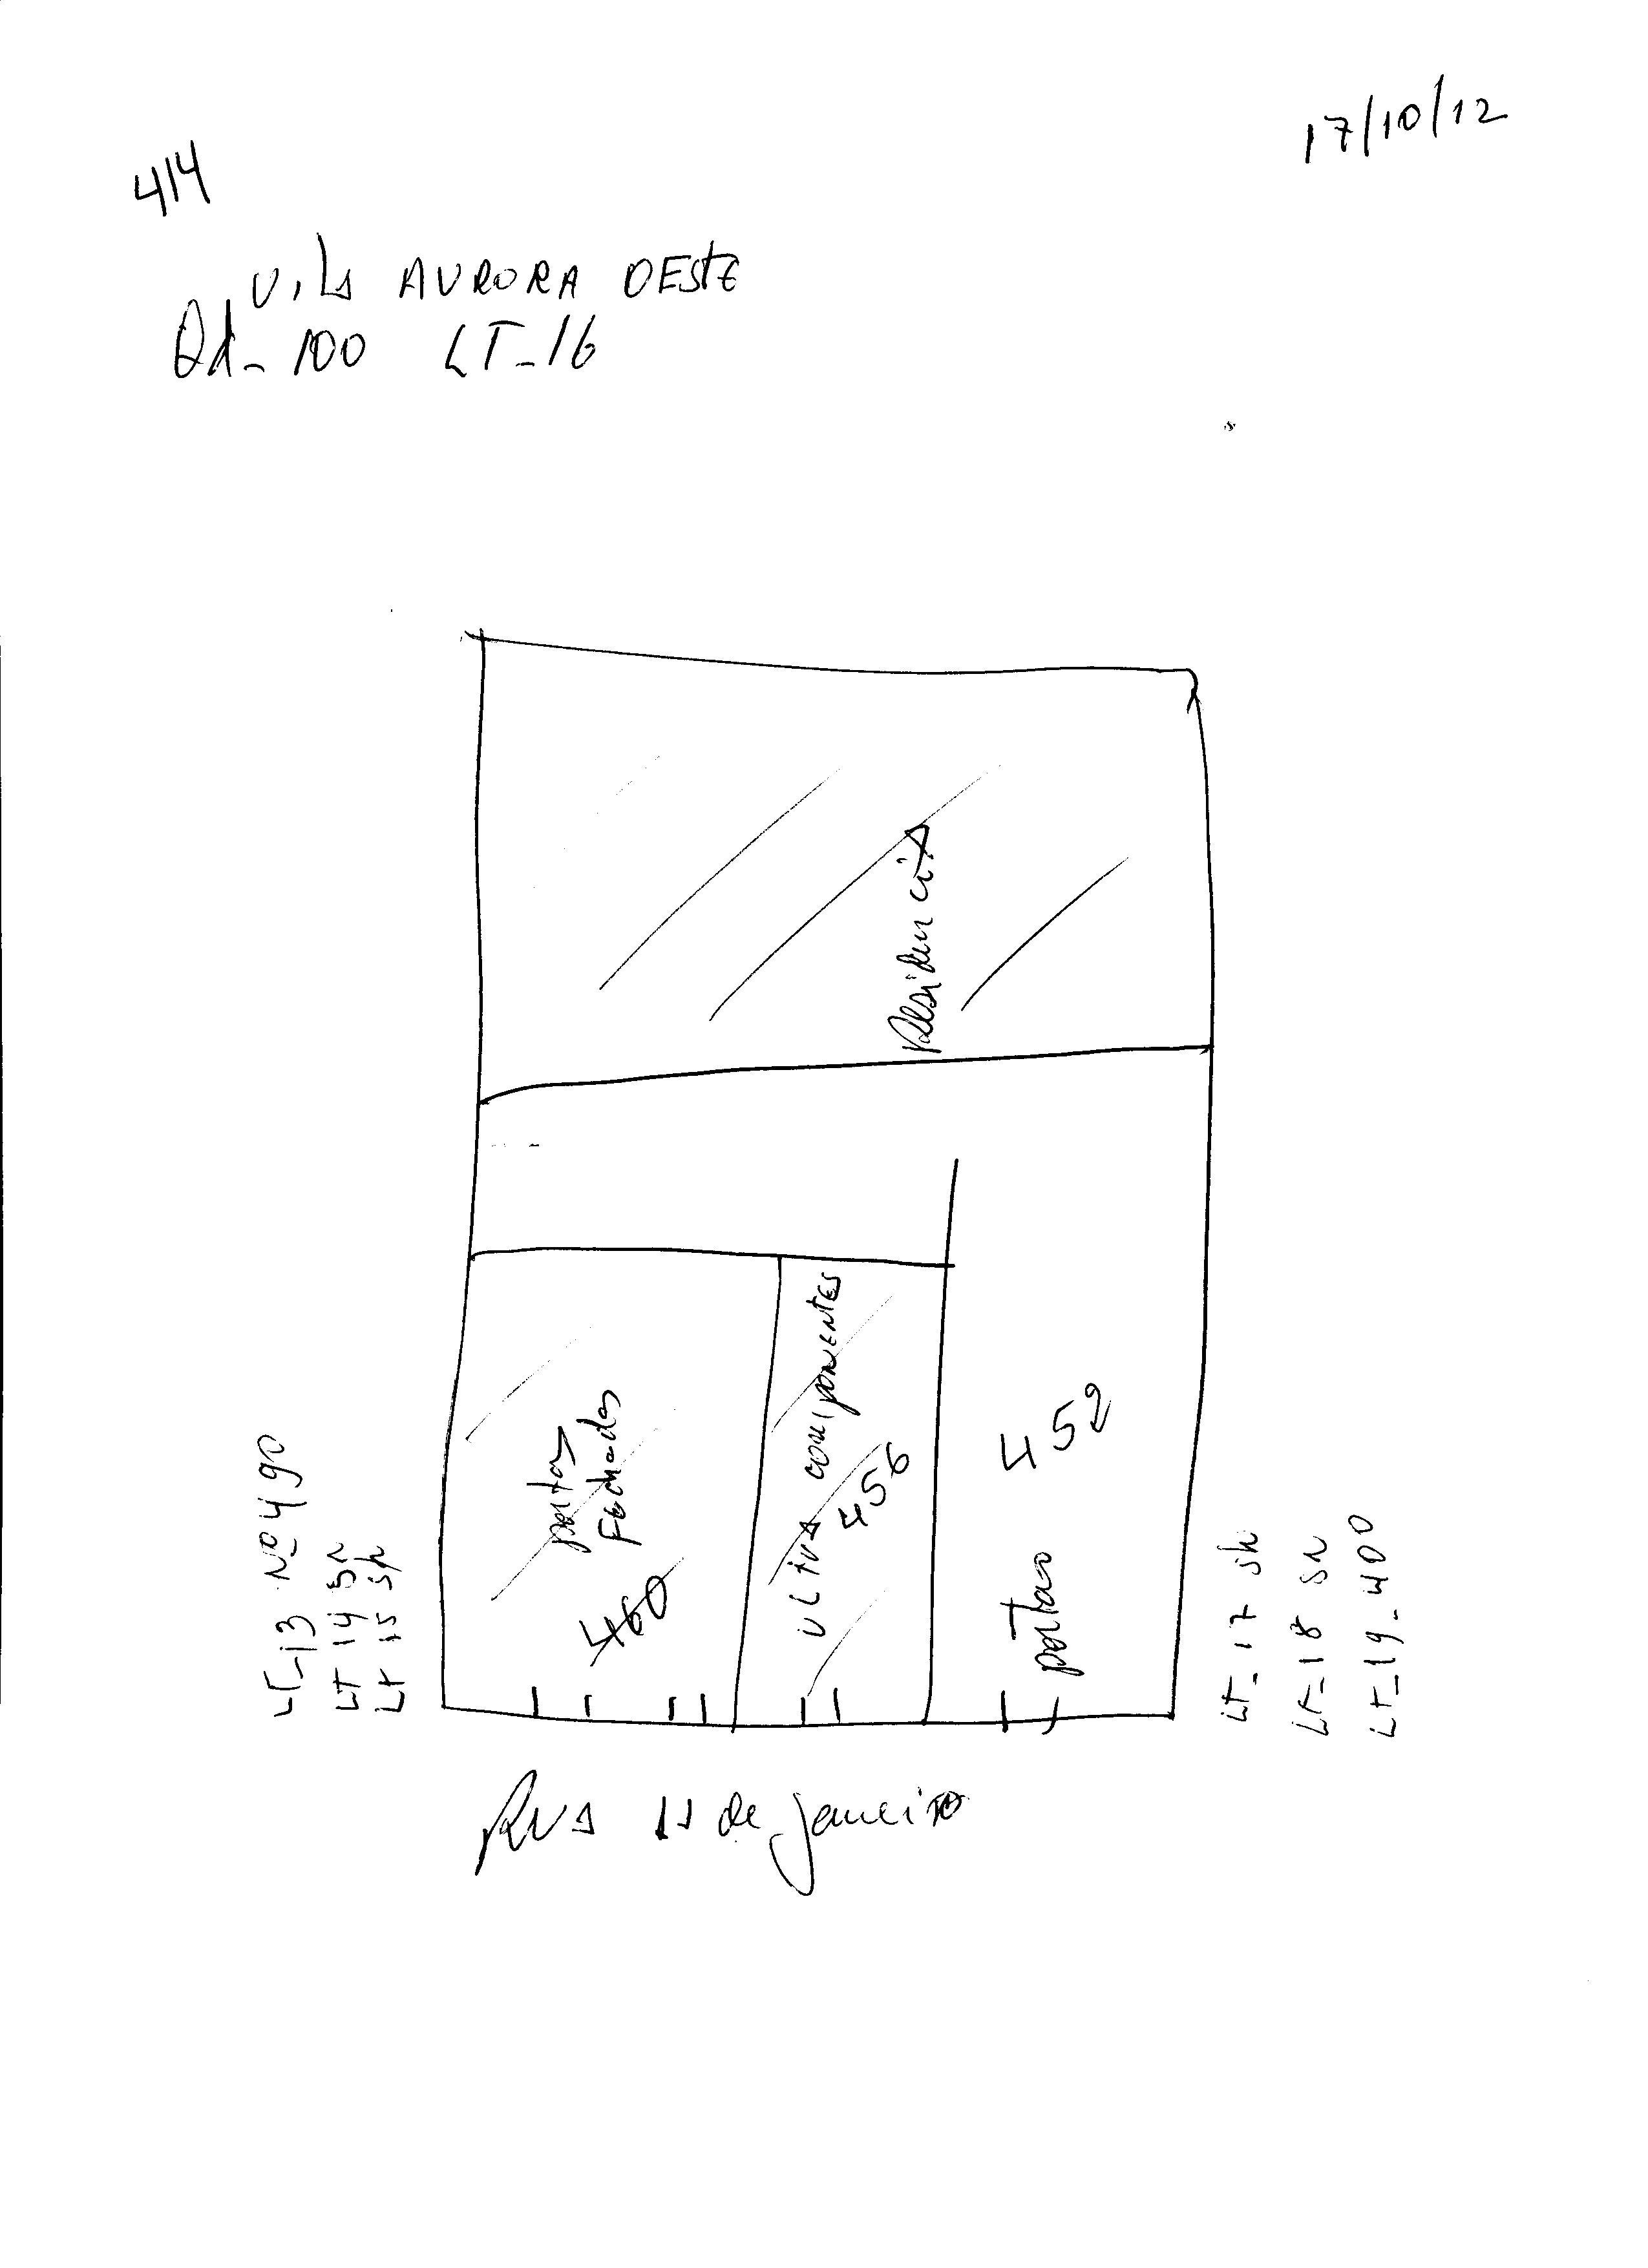 17/10/12
414
Vila AURORA OESTE
Qd_ 100 LT_16
Residencia
portas
Fechadas
460
ULTRA componentes
456
452
portao
LT_13 Nº 490
LT 14 sn
LT 15 sn
LT_17 sn
LT_18 sn
LT_19_400
RUA 11 de janeiro